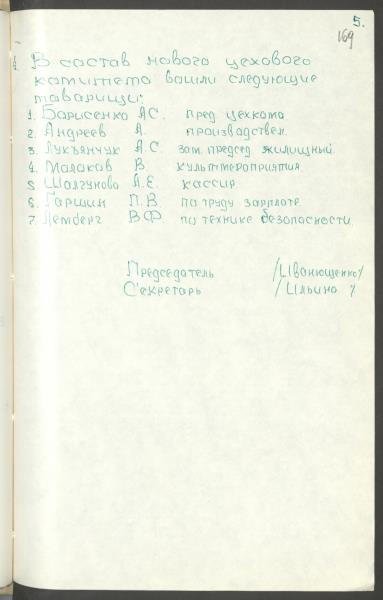 5.
169
В состав нового цехового
комитета вошли следующие
товарищи:
1. Борисенко А.С. пред цехкома
2. Андреев А. производствен.
3. Лукъянчук А.С. зам. председ. жилищный.
4. Малаков В. культмероприятия
5 Шалгунова А.Е. кассир.
6. Гаршин П.В. по труду зарплате
7. Лемберг В.Ф. по технике безопасности.
Председатель /Иванющенко/
Секретарь /Ильина/